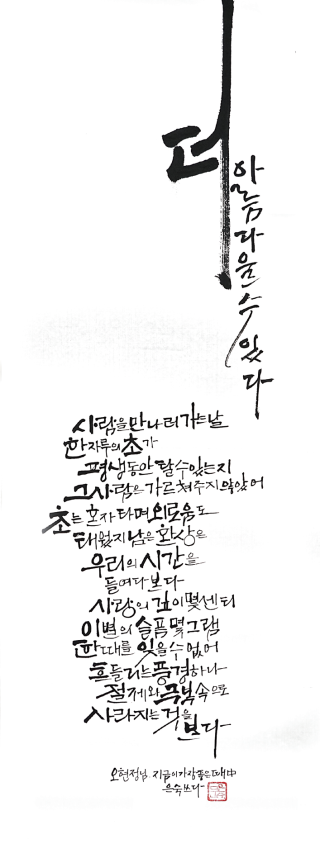 더
아름다울 수 있다
사람을 만나러 가는 날
한 자루의 초가
평생동안 탈 수 있는지
그 사람은 가르쳐주지 않았어
초는 혼자 타며 외로움도
태웠지 남은 환상은
우리의 시간을
들여다 보다
사랑의 깊이 몇 센티
이별의 슬픔 몇 그램
한때를 잊을 수 없어
흔들리는 풍경 하나
절제와 극복 속으로
사라지는 것을
보다
오현정님 지금이 가장 좋은 때 中
은숙 쓰다